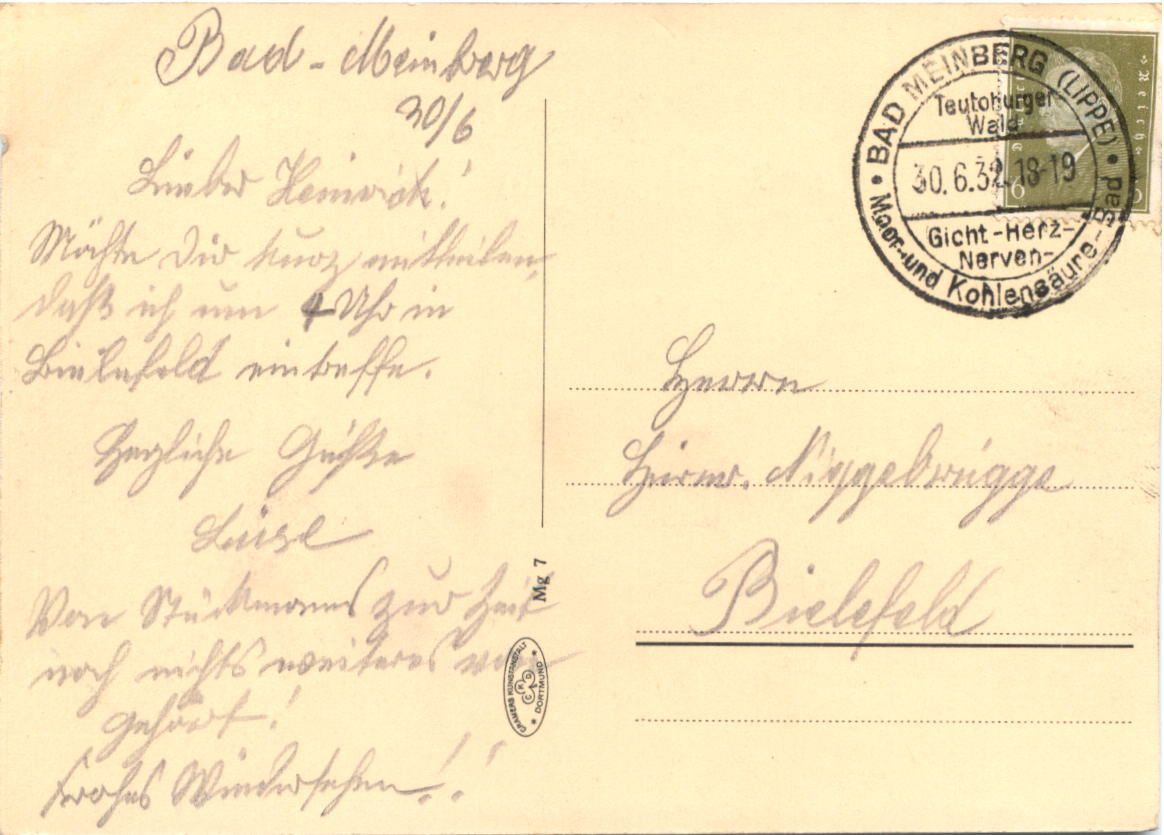 Bad-Meinberg
30/6
Lieber Heinrich!
Möchte Dir kurz mittheilen,
daß ich um 4 Uhr in
Bielefeld eintreffe.
Herzliche Grüße
Luise
Von Stückmanns zur Zeit
noch nichts weiteres von
gehört!
Frohes Wiedersehen!!
BAD MEINBERG (LIPPE)
Teutoburger-
Wald
30.6.32.18-19
Gicht-Herz-
Nerven-
Moor-und Kohlensäure-Bad
Deutsches Reich
6 6
Herrn
Heinr. Niggebrügge
Bielefeld
Mg 7
CRAMERS KUNSTANSTALT
DORTMUND
CKD